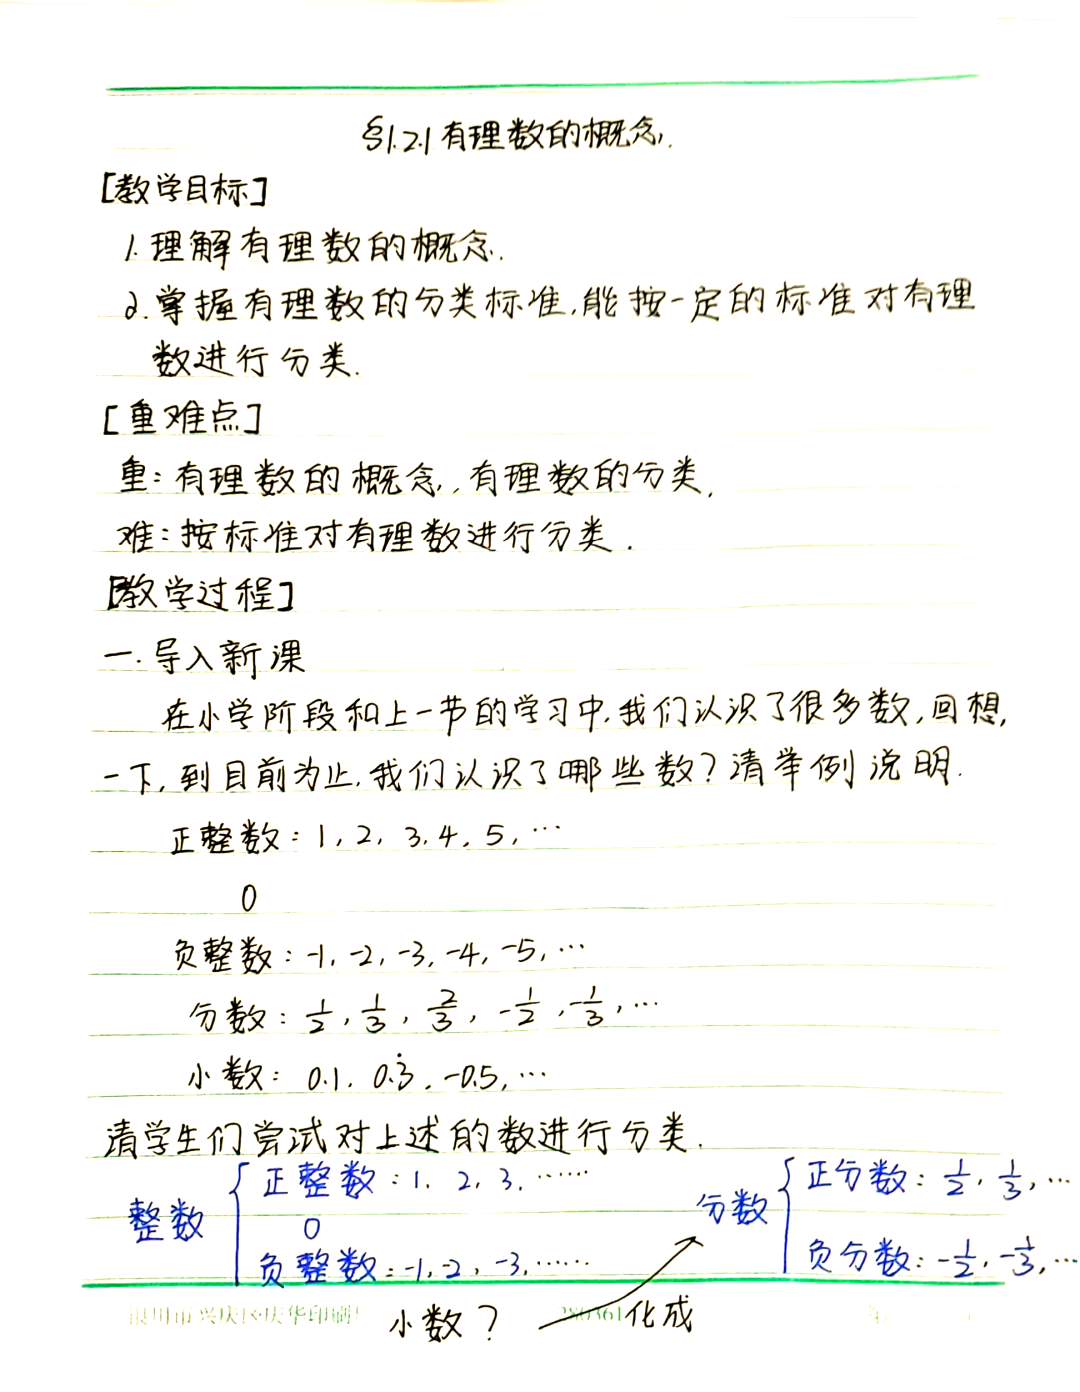 §1.2.1 有理数的概念.
[教学目标]
1. 理解有理数的概念.
2. 掌握有理数的分类标准,能按一定的标准对有理
数进行分类.
[重难点]
重:有理数的概念,有理数的分类,
难:按标准对有理数进行分类.
[教学过程]
一.导入新课
在小学阶段和上一节的学习中,我们认识了很多数,回想,
一下,到目前为止,我们认识了哪些数?请举例说明.
正整数:1, 2, 3, 4, 5, …
0
负整数:-1, -2, -3, -4, -5, …
分数:1/2, 1/3, 2/3, -1/2, -1/3, …
小数:0.1, 0.3̇, -0.5, …
请学生们尝试对上述的数进行分类.
整数 { 正整数:1, 2, 3, ……
0
负整数:-1, -2, -3, ……
分数 { 正分数:1/2, 1/3, …
负分数:-1/2, -1/3, …
小数? 化成
银川市兴庆区庆华印刷
280361